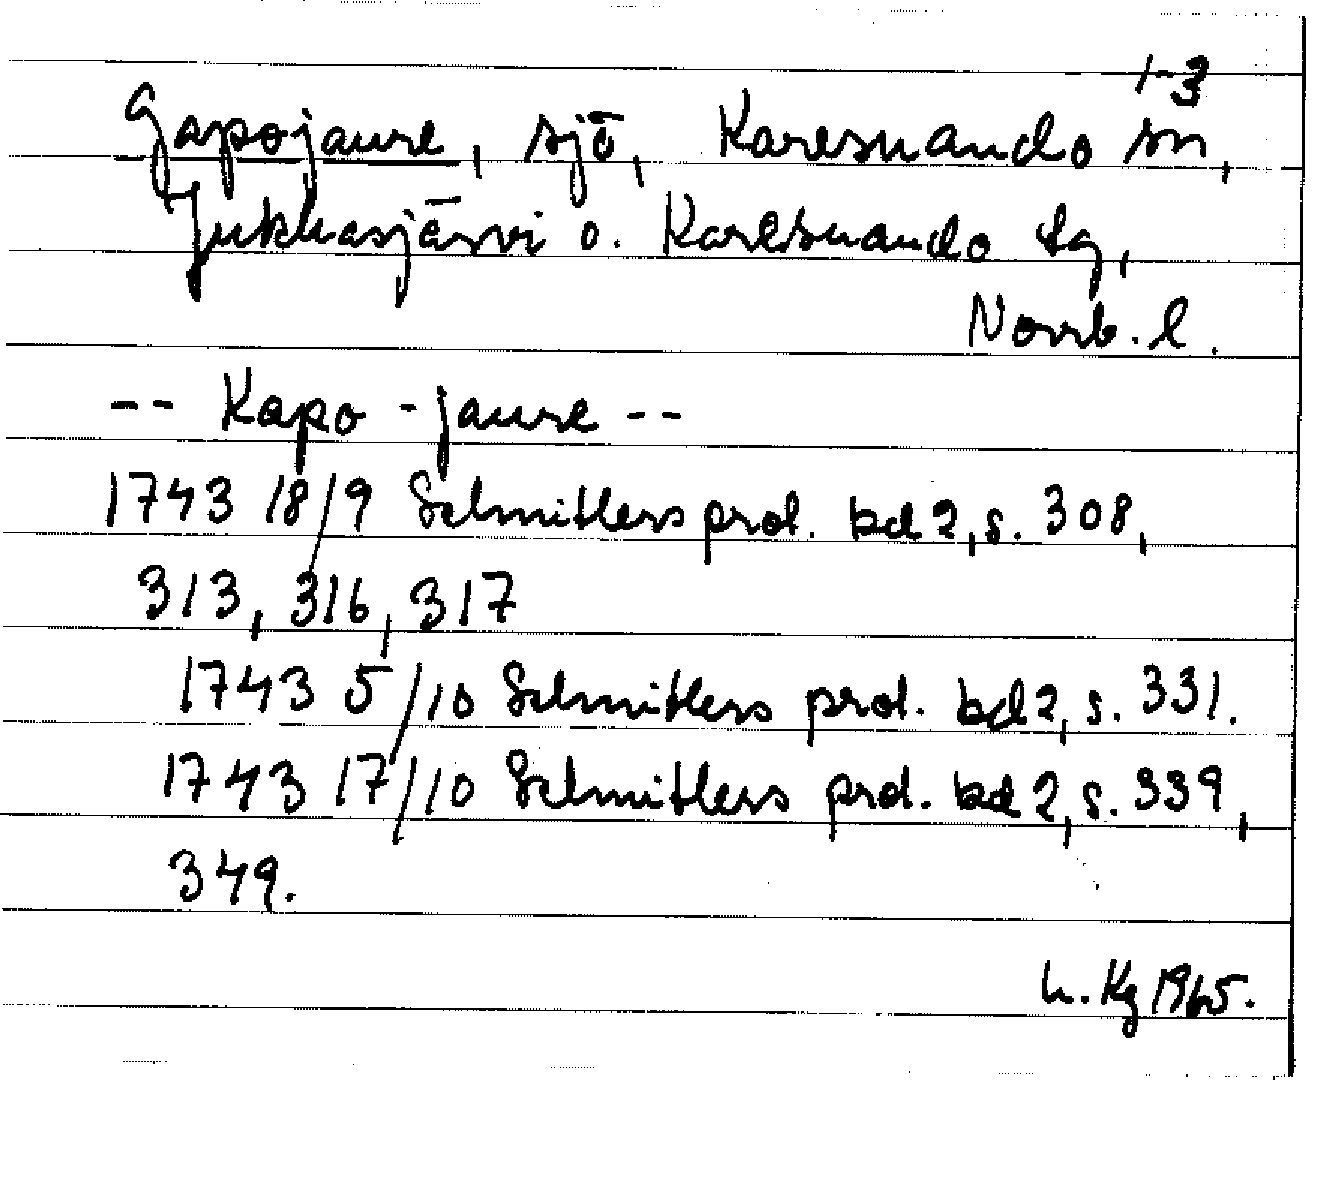 1-3
Gapojaure, sjö, Karesuando sn,
Jukkasjärvi o. Karesuando tg,
Norrb. l.
-- Kapo - jaure --
1743 18/9 Schnitlers prot. bd 2, s. 308,
313, 316, 317
1743 5/10 Schnitlers prot. bd 2, s. 331.
1743 17/10 Schnitlers prot. bd 2, s. 339,
349.
h. Kg 1965.